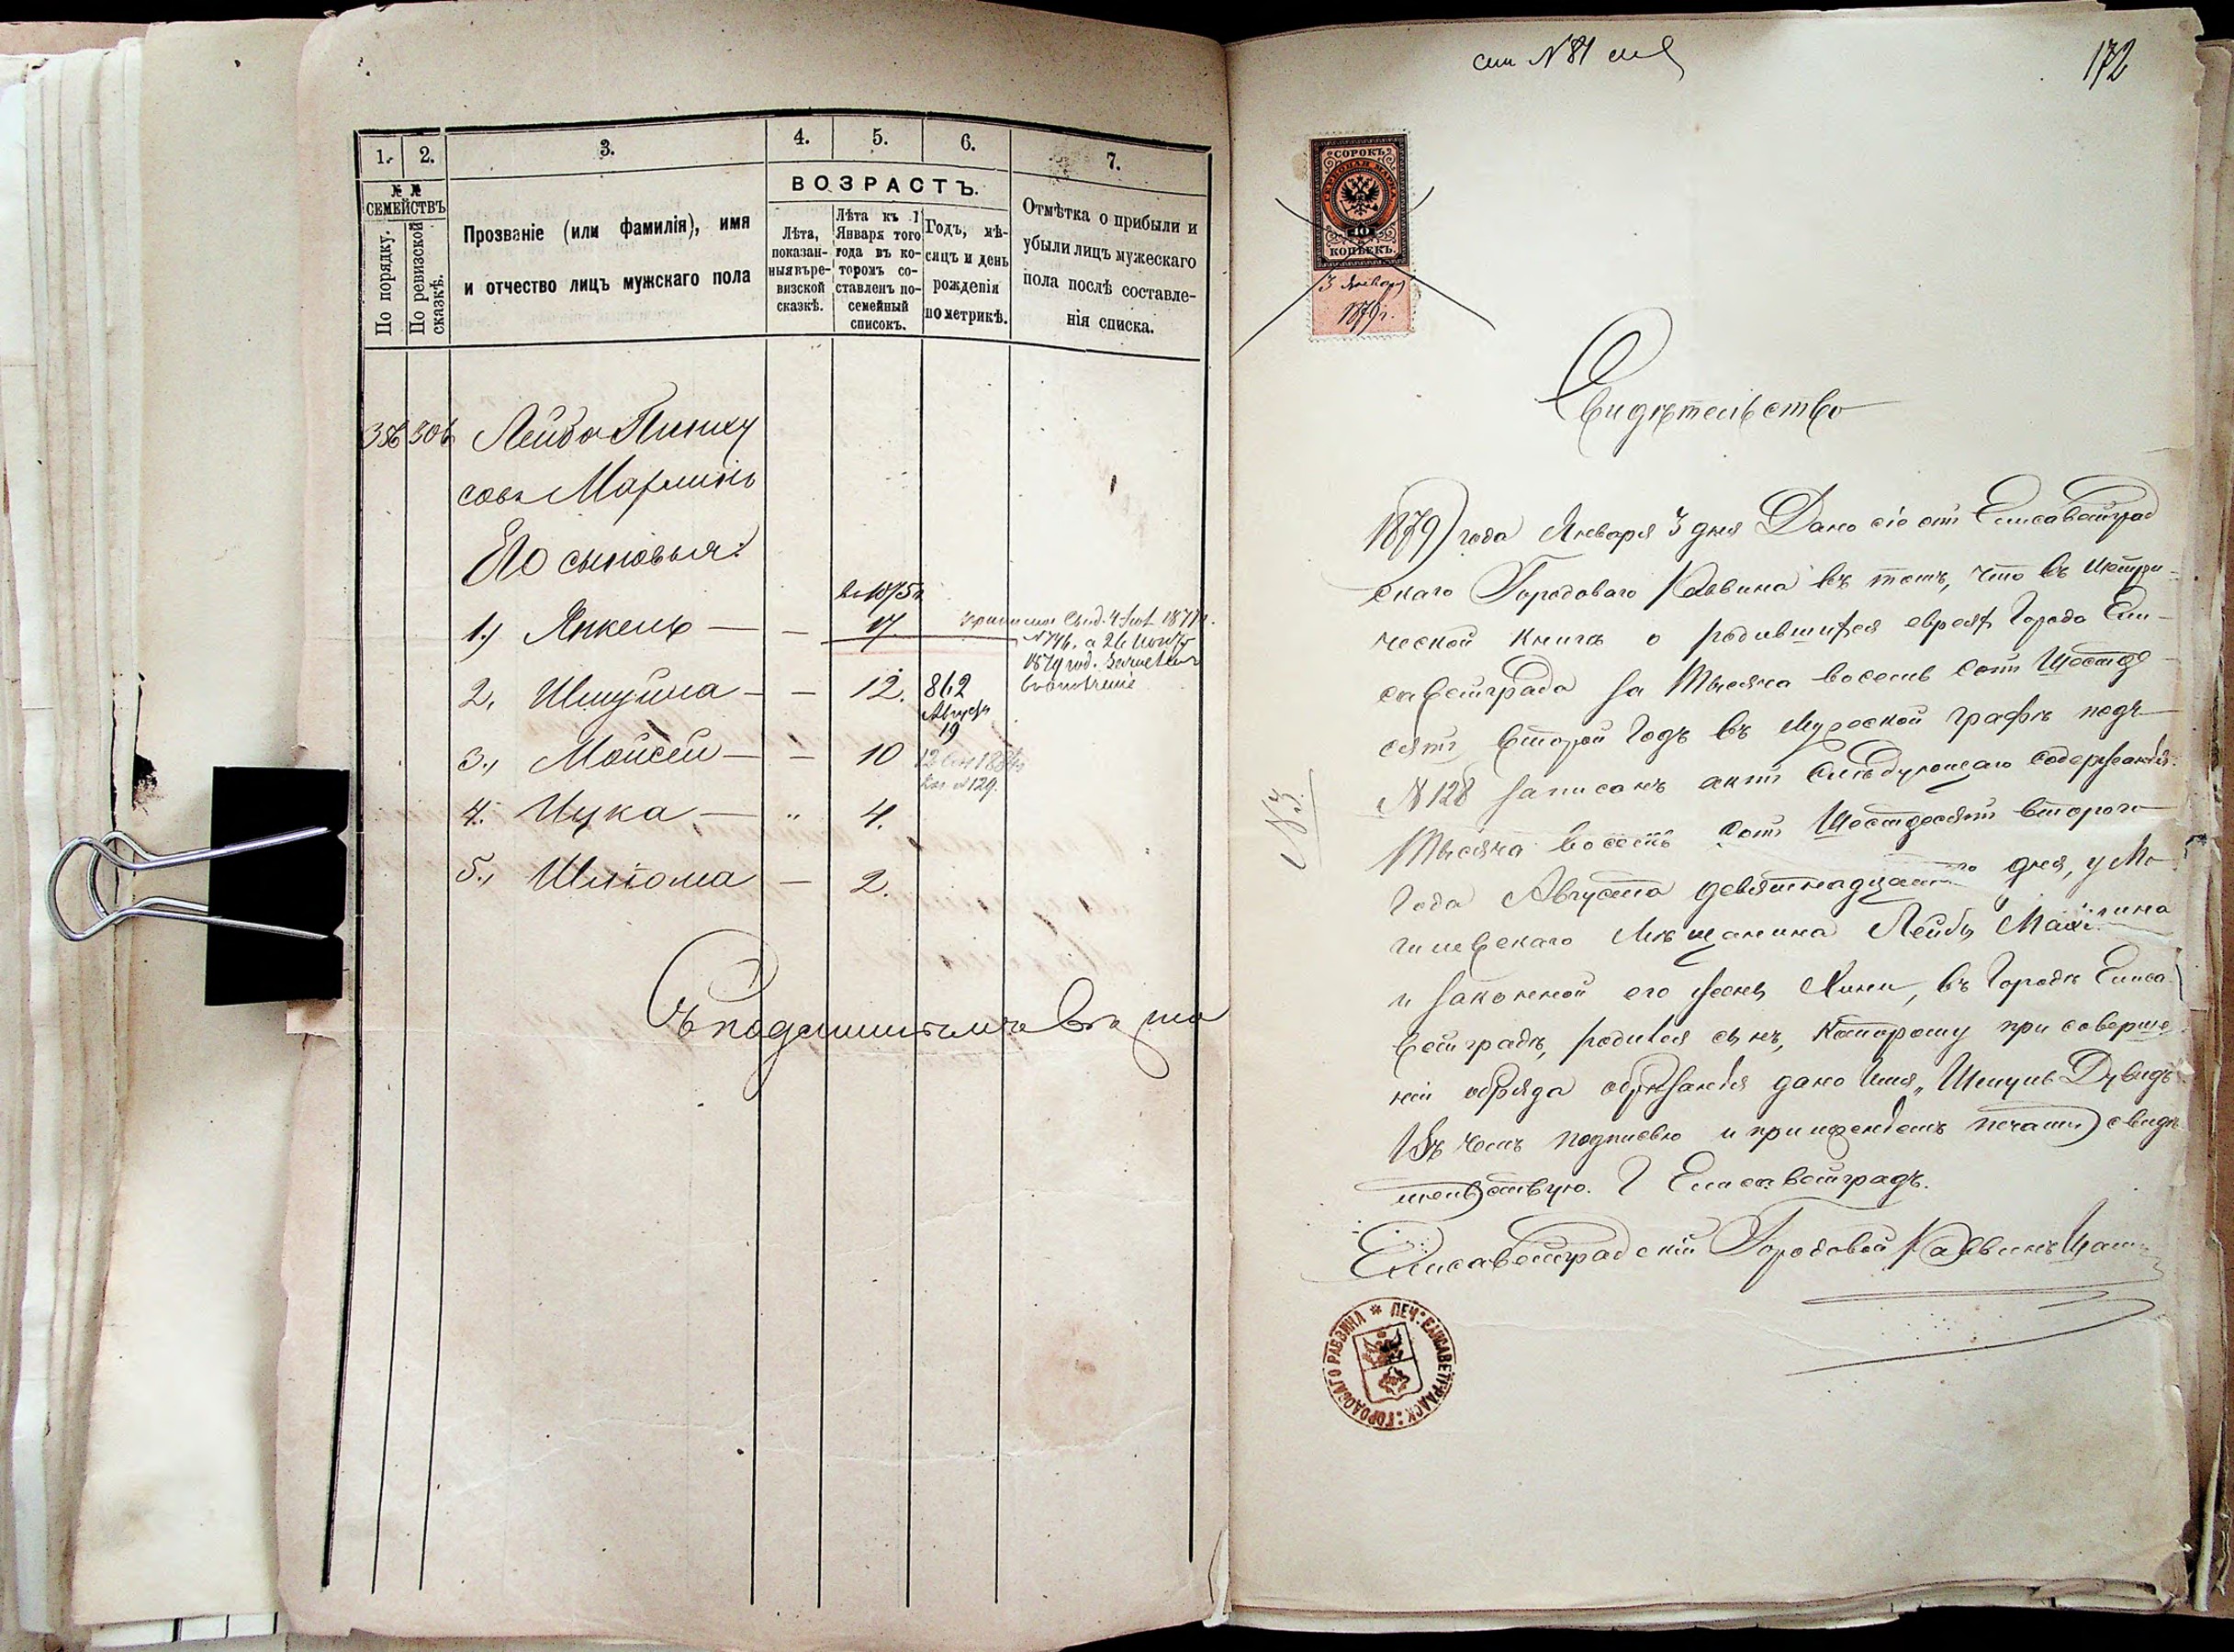 1. 2. 3. 4. 5. 6. 7.
№ №
СЕМЕЙСТВЪ
По порядку.
По ревизской
сказкѣ.
Прозваніе (или фамилія), имя
и отчество лицъ мужскаго пола
ВОЗРАСТЪ.
Лѣта,
показан-
ныя въ ре-
визской
сказкѣ.
Лѣта къ 1
Января того
года въ ко-
торомъ со-
ставленъ по-
семейный
списокъ.
Годъ, мѣ-
сяцъ и день
рожденія
по метрикѣ.
Отмѣтка о прибыли и
убыли лицъ мужескаго
пола послѣ составле-
нія списка.
Лейба Пинху
совъ
Его сыновья:
1.) Янкель — — 17.
2, Шмуйла — — 12. 862
Августа
19
3., Мойсей — — 10
№ 129.
4. Ицка — " 4.
5., Шліома — 2.
Съ подлиннымъ
№ 81
172
СОРОКЪ
ГЕРБОВАЯ МАРКА
40
КОПѢЕКЪ
3 Января
1879 г.
Свидѣтельство
1879 года Января 3 дня Дано сіе отъ Елисаветград
скаго Городоваго Раввина въ томъ, что въ метри-
ческой книгѣ о родившихся евреях Города Ели-
саветграда за Тысяча восемь сотъ Шестьде-
сятъ второй Годъ въ мужской графѣ подъ
№ 128 записанъ актъ слѣдующаго содержанія:
Тысяча восемь сотъ Шестдесятъ второго
Года Августа девятнадцатаго дня, у Мо-
гилевскаго Мѣщанина Лейбы
и законной его жены Хини, въ Городѣ Елиса-
ветградѣ, родился сынъ, которому при соверше-
ніи обряда обрѣзанія дано имя „Шмуль Дувидъ"
Въ чемъ подписью и приложеніемъ печати свидѣ-
тельствую. Г Елисаветградъ.
Елисаветградскій Городовой Раввинъ
№ 3.
ПЕЧ: ЕЛИСАВЕТГРАДСК: ГОРОДОВАГО РАВВИНА *